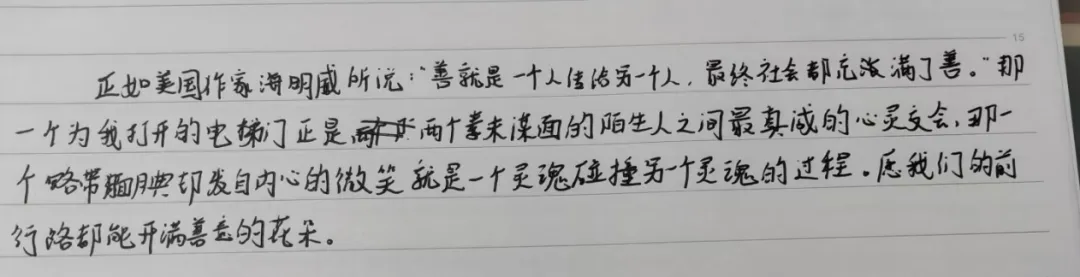 15
正如美国作家海明威所说:“善就是一个人传给另一个人,最终社会都充满了善。”那
一个为我打开的电梯门正是两个素未谋面的陌生人之间最真诚的心灵交会,那一
个略带腼腆却发自内心的微笑就是一个灵魂碰撞另一个灵魂的过程。愿我们的前
行路都能开满善意的花朵。